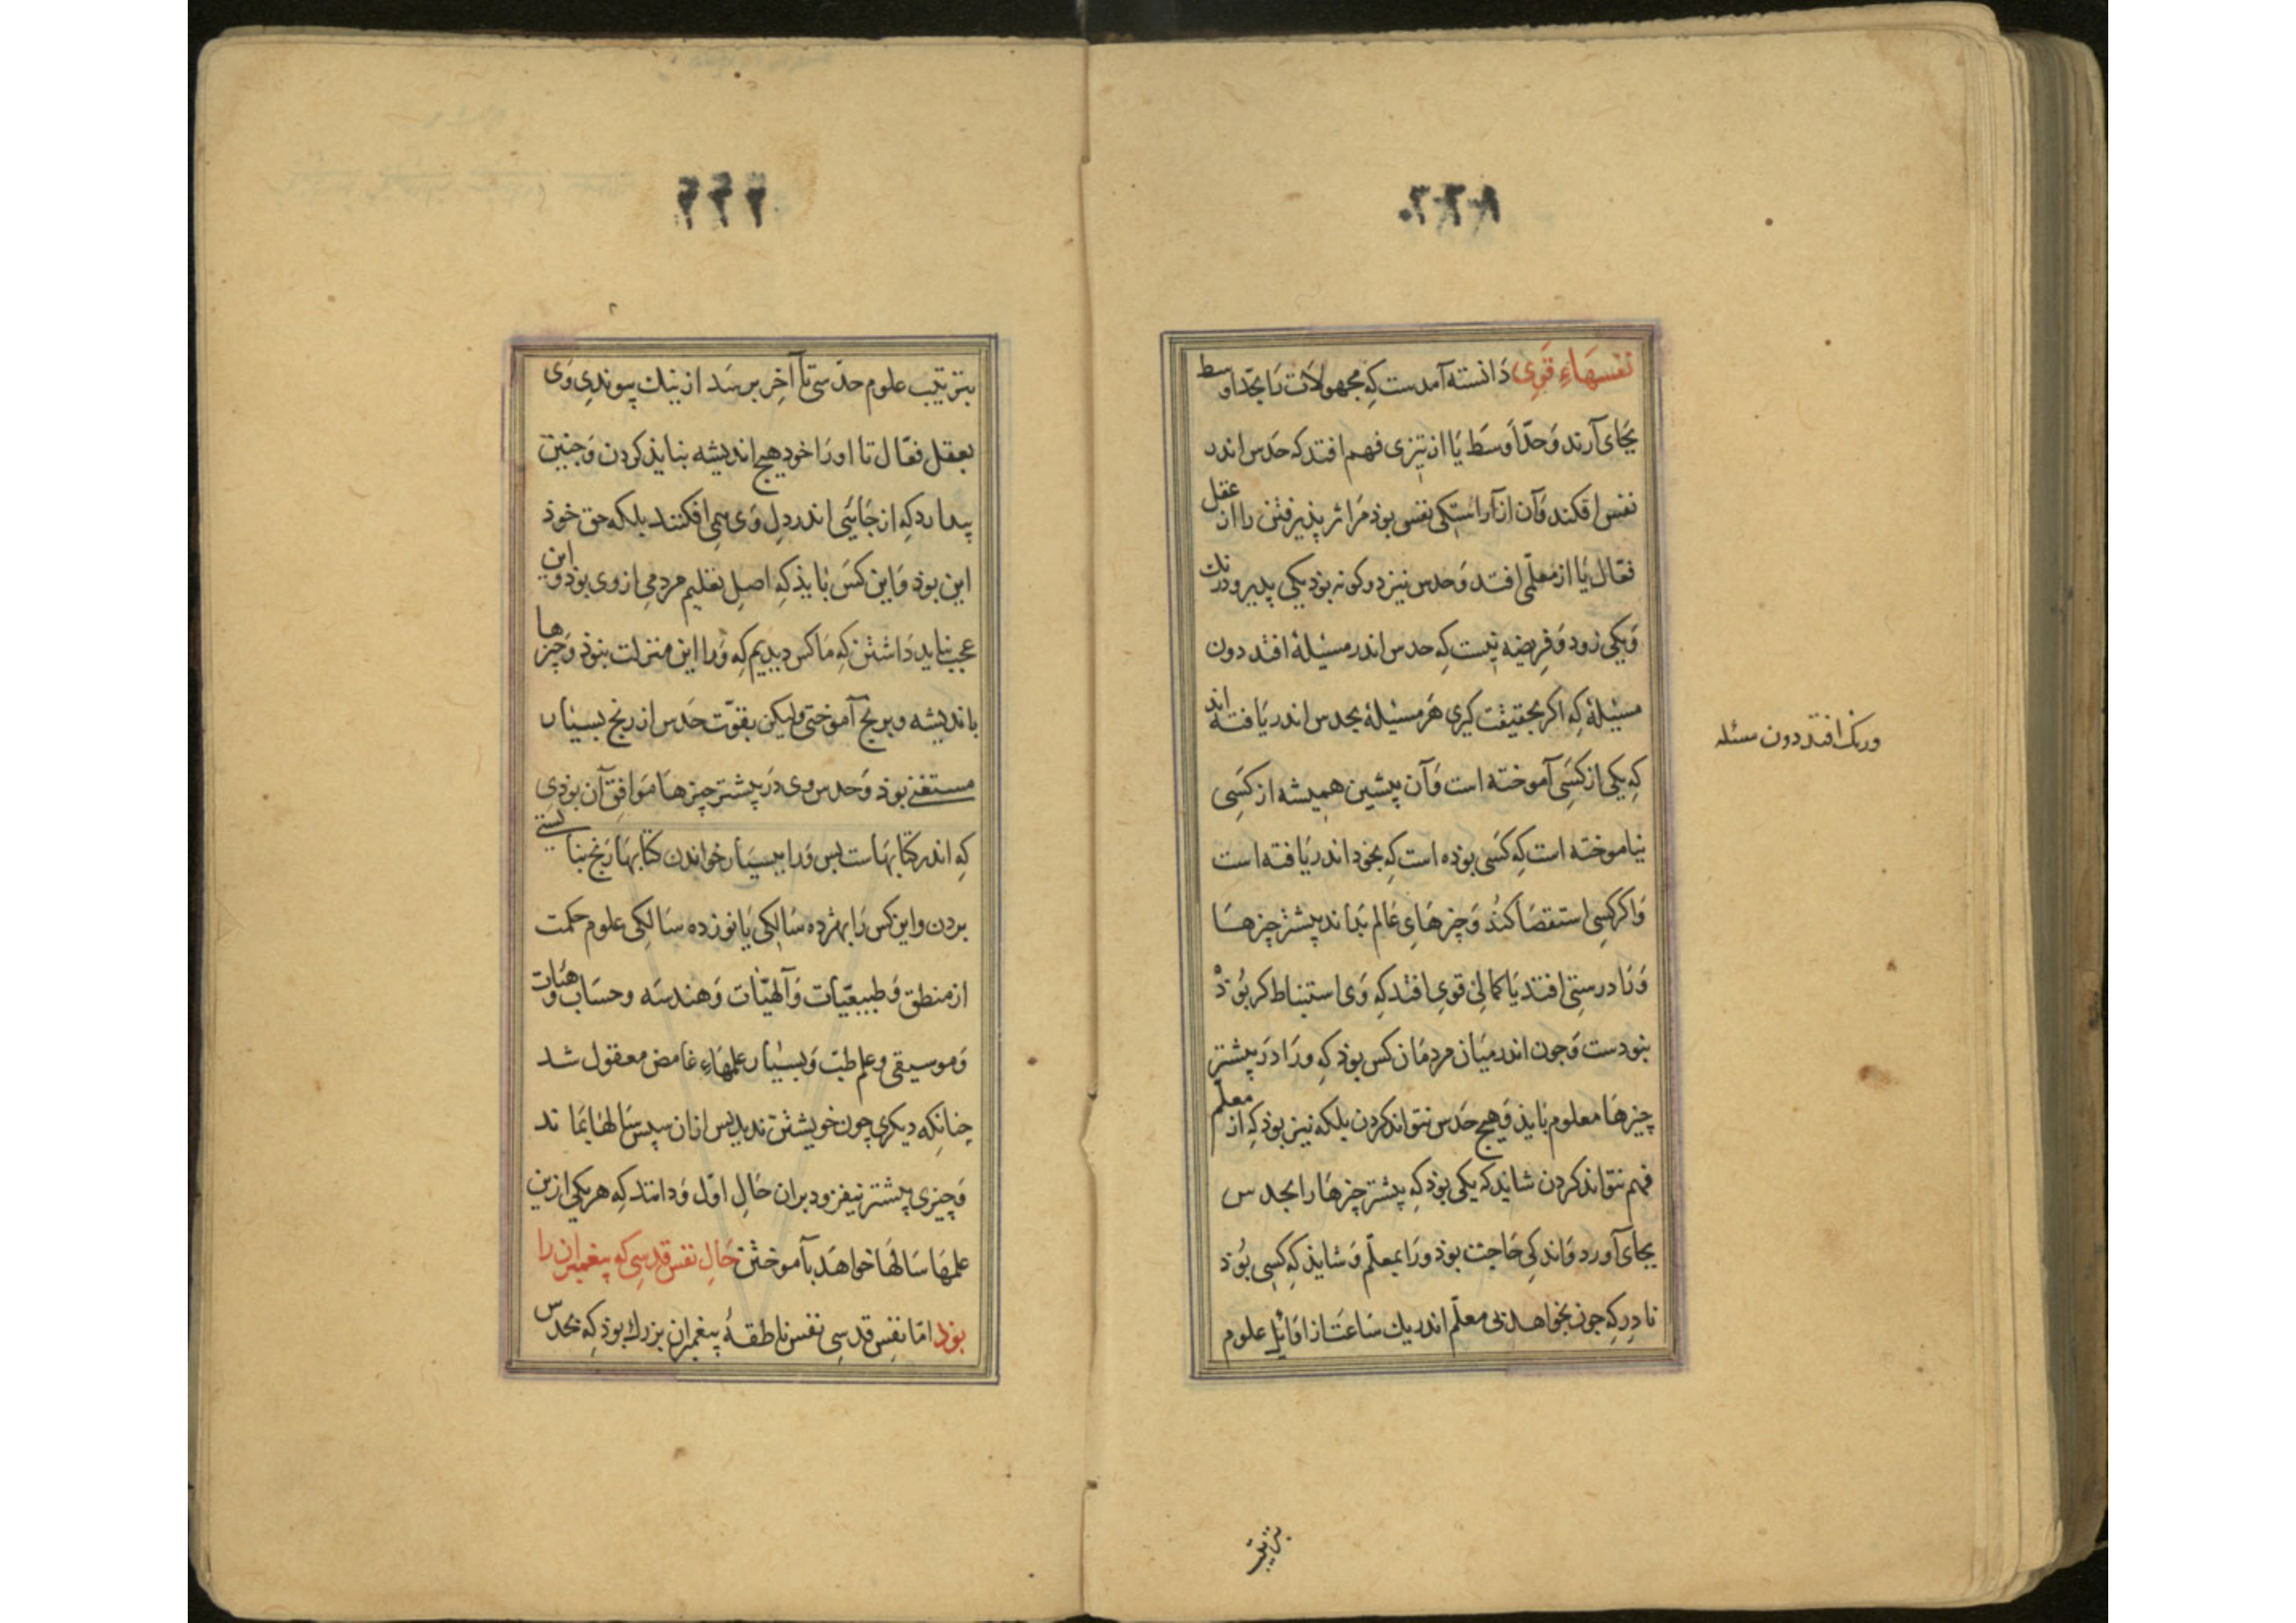 نفسهاءِ قَوی دَانسته آمدست کِه مجهولات رَا بحدّ اوسط
بجَای آرند وَ حدّ اَوسَط یَا از تیزی فهم افتد که حَدس اندر
نفس افکند وَ آن از آراستکی نفس بوذ مَر اثر پذیرفتن را از عقل
فعّال یَا از معلّمی افتد وَ حدس نیز دو کونه بوذ یکی بدیر و درنك
وَ یکی زود وَ فریضه نیست کِه حدس اندر مسیٔلهٔ افتد دون
مسیٔلهٔ کِه اکر بحقیقت کیری هَر مسیٔلهٔ بحدس اندر یَافته اند
کِه یکی از کسَی آموخته است وَ آن پیشین همیشه از کسَی
نیاموخته است کِه کسَی بوذه است کِه بخود اندر یَافته است
وَ اکر کسِی استقصَا کنُد وَ چیزهَاءِ عَالم بداند پیشتر چیزهَا
وَ نَا درستی افتد یَا کمالی قوی افتد کِه وَی استنباط کر بُوذ
نبودست وَ چون اندر میَان مردمَان کس بوذ کِه ورَا دَر پیشتر
چیزهَا معلوم بَایذ وَ هیج حَدس نتواند کردن بلکه نیز بوذ کِه از معلّم
فهم نتواند کردن شایذ که یکی بوذ کِه پیشتر چیزهَا را بحدس
بجای آورد وَ اندکی حَاجت بوذ ورَا بمعلّم وَ شایذ کِه کسِی بُوذ
نادِر کِه چون بخواهد بی معلّم اندر یك سَاعَت از اوَایٔل علوم
بترتیب
ودرنك افتد دون مسئله
بترتیب علوم حدسی تا آخِر برسَد از نیك پیوندیِ وَی
بعقل فعّال تا اورَا خود هیج اندیشه نبایذ کردن وَ چنین
پندارد کِه از جَایٔی اندر دلِ وَی همی افکنند بلکه حق خوذ
این بوذ وَ این کسَ بَایذ کِه اصلِ تعلیم مردمی از وی بوذ و این
عجب نباید دَاشتن کِه مَا کس دیدیم کِه وَرا این منزلت نبوذ وَ چیزها
باندیشه و برنج آموختی ولیکن بقوّت حَدس از رنج بسیار
مستغنی بوذ وَ حدس وی دَر پیشتر چیزهَا مَوافِق آن بوذی
کِه اندر کتابهَاست پس وَرا ببسیَار خواندن کتابهَا رَنج نبایستی
بردن و این کس رَا بهژده سَالکی یَا نوزده سَالِکی علوم حکمت
از منطق وَ طبیعیّات وَ آلهیّات وَ هندسَه و حسَاب و هَیٔات
وَ موسیقی و علم طبّ وَ بسیَار علمهَاءِ غامض معقول شد
چنانکه دیکری چون خویشتن ندید پس از آن سپس سَالها بماند
وَ چیزی پیشتر نیفزود بران حَالِ اوّل وَ دانند کِه هر یکی ازین
علمهَا سَالهَا خواهَد بآموختن حَالِ نفس قدسِی کِه پیغمبران را
بوذ امّا نفس قدسِی نفس ناطقهٔ پیغمبران بزرك بوذ کِه بحَدس